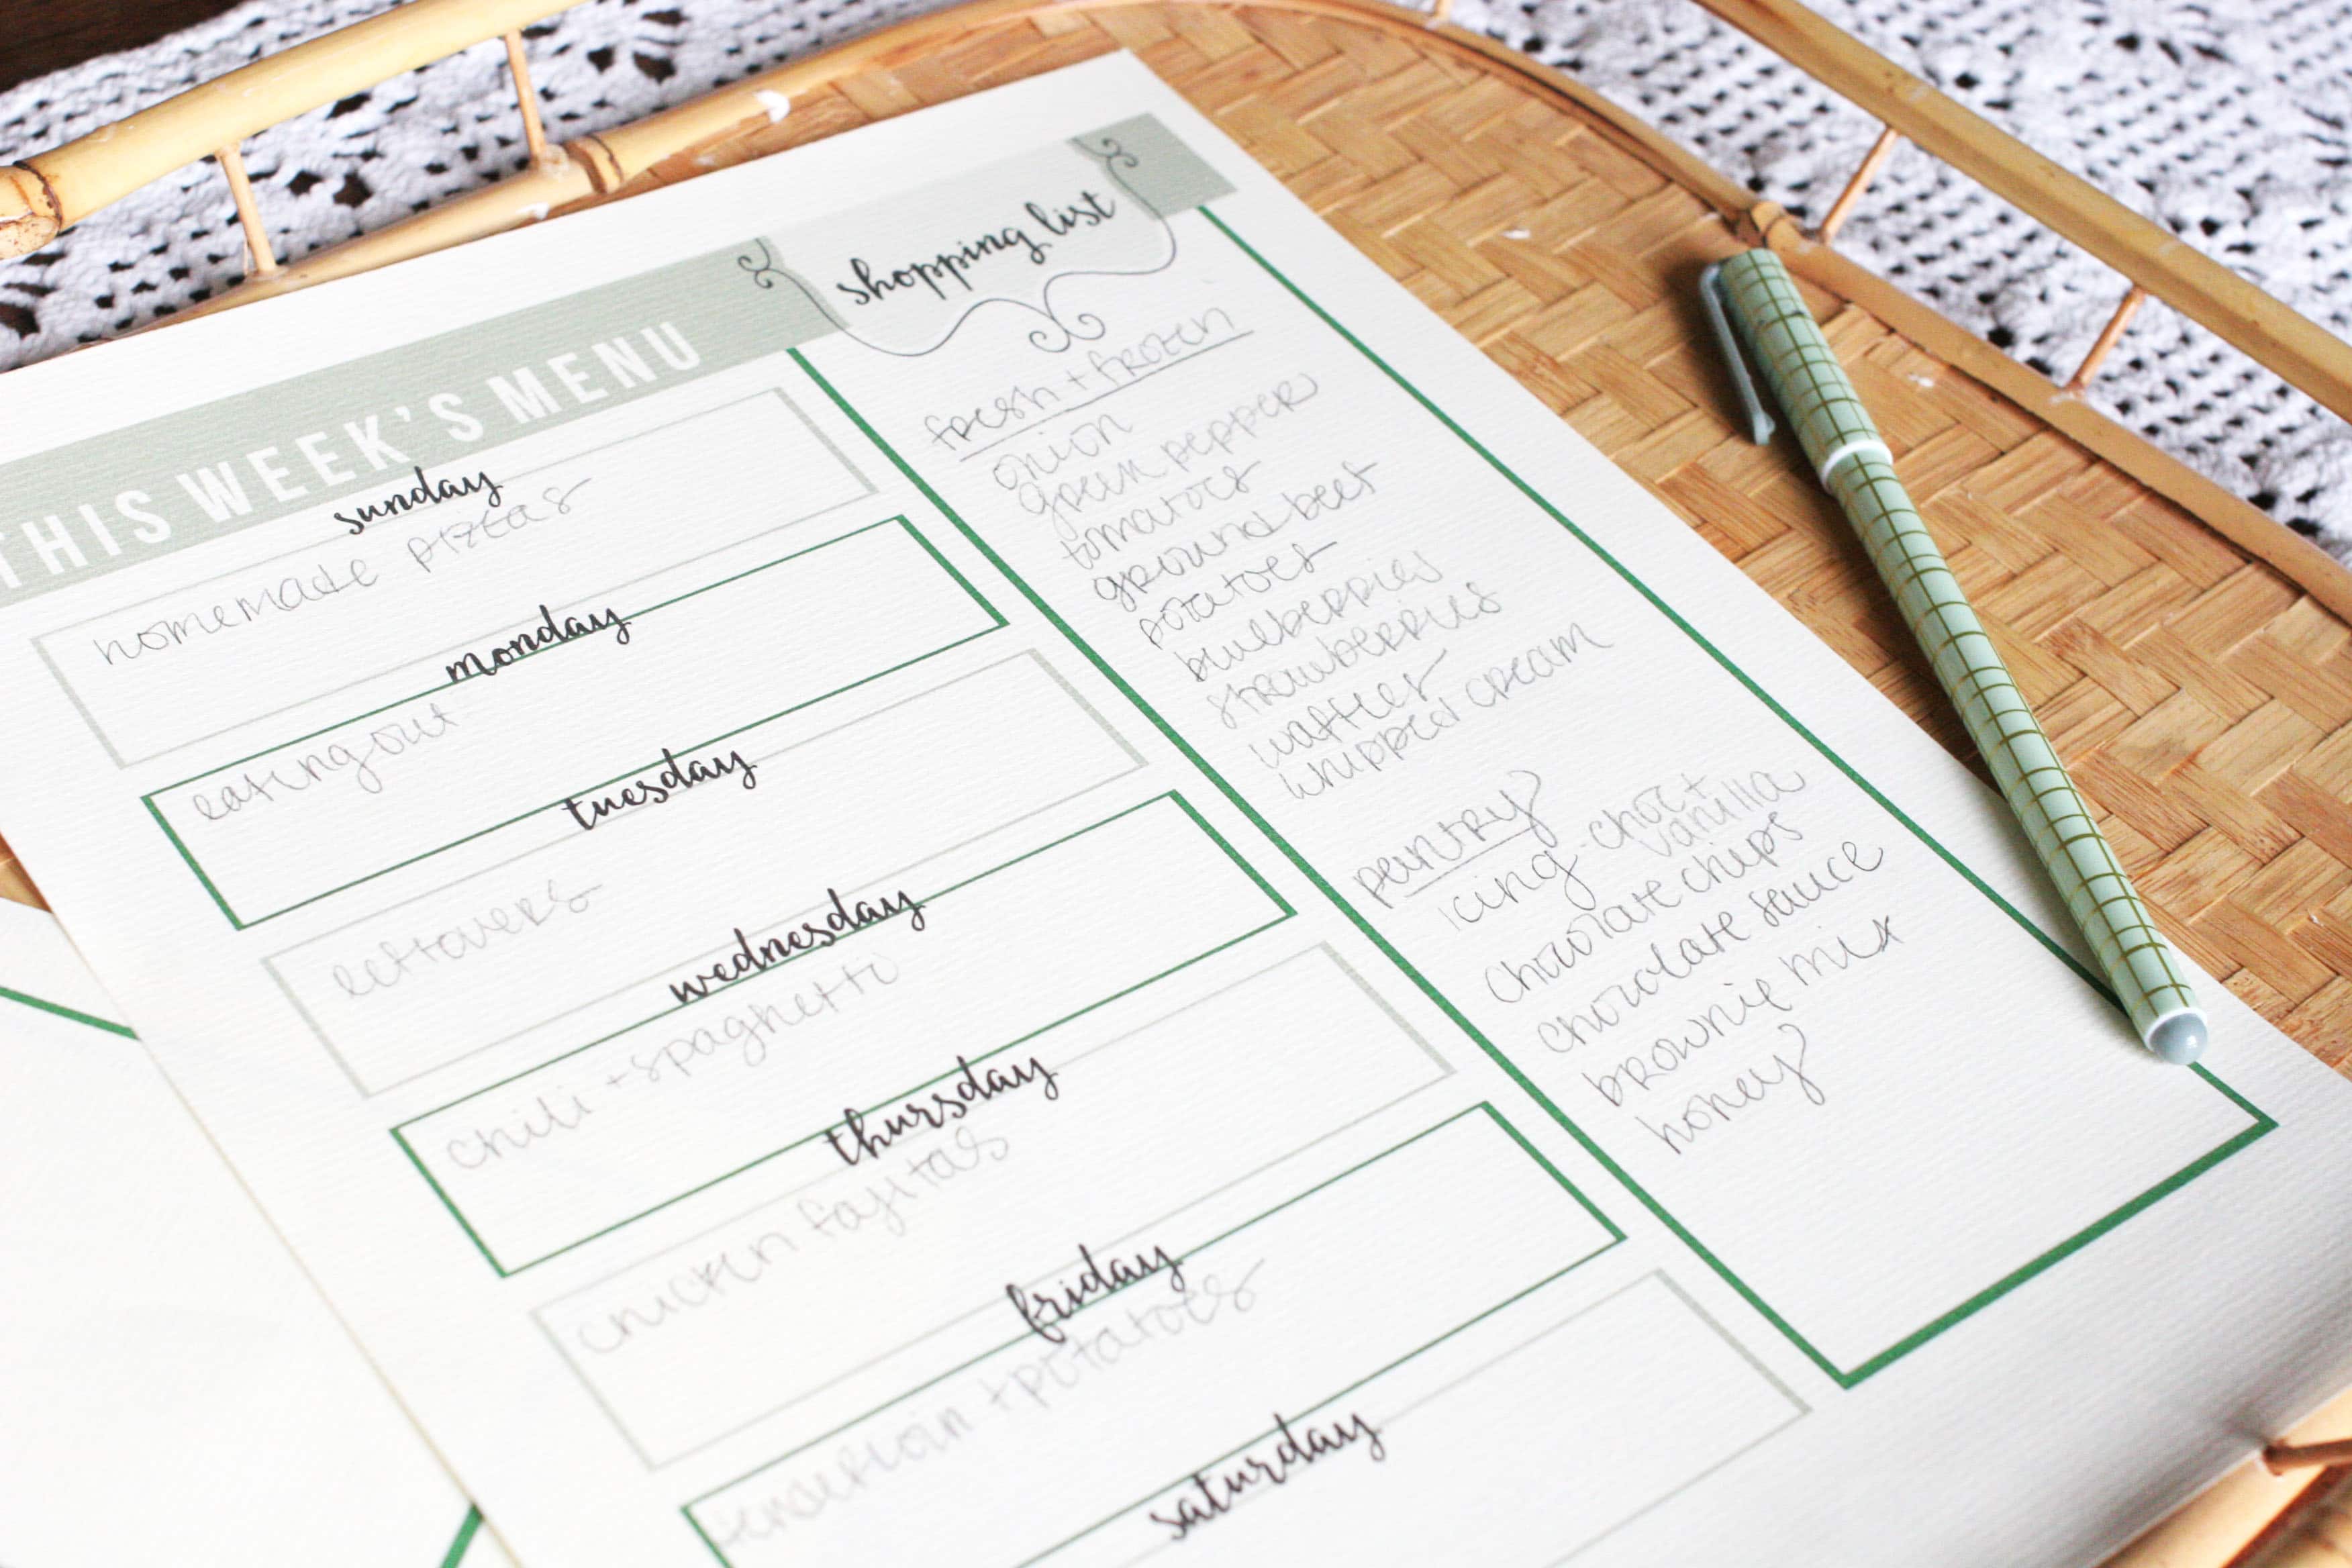 THIS WEEK'S MENU
sunday
homemade pizzas
monday
eating out
tuesday
leftovers
wednesday
chili + spaghetti
thursday
chicken fajitas
friday
tenderloin + potatoes
saturday
shopping list
fresh + frozen
onion
green pepper
tomatoes
ground beef
potatoes
blueberries
strawberries
waffles
whipped cream
pantry
icing - choc +
vanilla
chocolate chips
chocolate sauce
brownie mix
honey